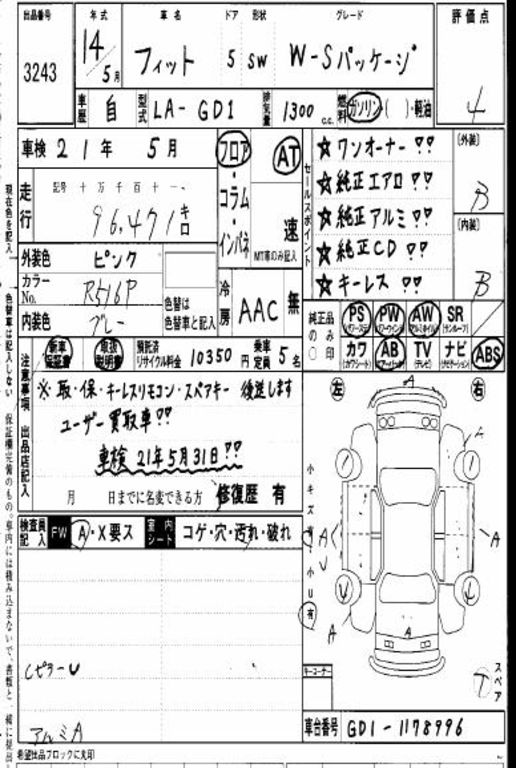 出品番号 年式 車名 ドア 形状 グレード 評価点
3243 14/5月 フィット 5 SW W-Sパッケージ 4
車歴 自 型式 LA-GD1 排気量 1300 c.c. 燃料 ガソリン・( )・軽油
車検 21年 5月 フロア・コラム・インパネ AT 速 MT車のみ記入
走行 記号 十万千百十一、
96,471キロ
外装色 ピンク
カラーNo. R516P 色替は色替車と記入
内装色 グレー
冷房 AAC 無
セールスポイント
☆ワンオーナー!!
☆純正エアロ!!
☆純正アルミ!!
☆純正CD!!
☆キーレス!!
[外装] B
[内装] B
純正品のみ○印
PS(パワーステ) PW(パワーウインド) AW(アルミホイル) SR(サンルーフ)
カワ(カワシート) AB(エアーバック) TV(テレビ) ナビ(ナビゲーション) ABS
新車保証書 取扱説明書 預託済リサイクル料金 10350円 乗車定員 5名
注意事項 出品店記入
※取・保・キーレスリモコン・スペアキー 後送します
ユーザー買取車!!
車検21年5月31日!!
月 日までに名変できる方 修復歴 有
検査員記入 FW A・X要ス 室内シート コゲ・穴・汚れ・破れ
CピラーU
アルミA
希望出品ブロックに丸印
左 右
A
A
A
A
A
A
U
小キズ
小U有
キーコーナー
スペア
車台番号 GD1-1178996
現在色を記入
色替車は記入しない